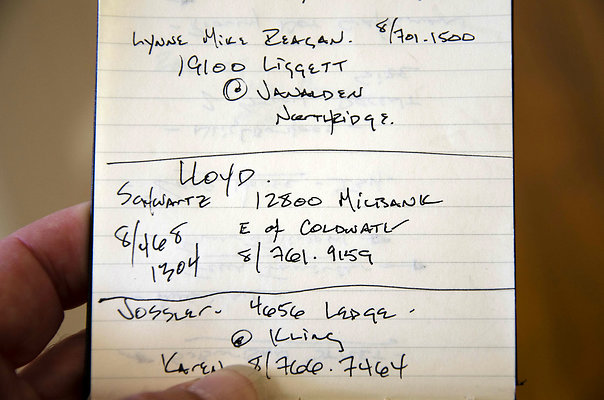 Lynne Mike Zeagan. 8/701.1500
19100 Liggett
@ Janalden
Northridge.
Lloyd.
Schwartz 12800 Milbank
8/468 E of Coldwatr
1304 8/761.9159
Jossler. 4656 Ledge.
@ Kling
Karen 8/766.7464